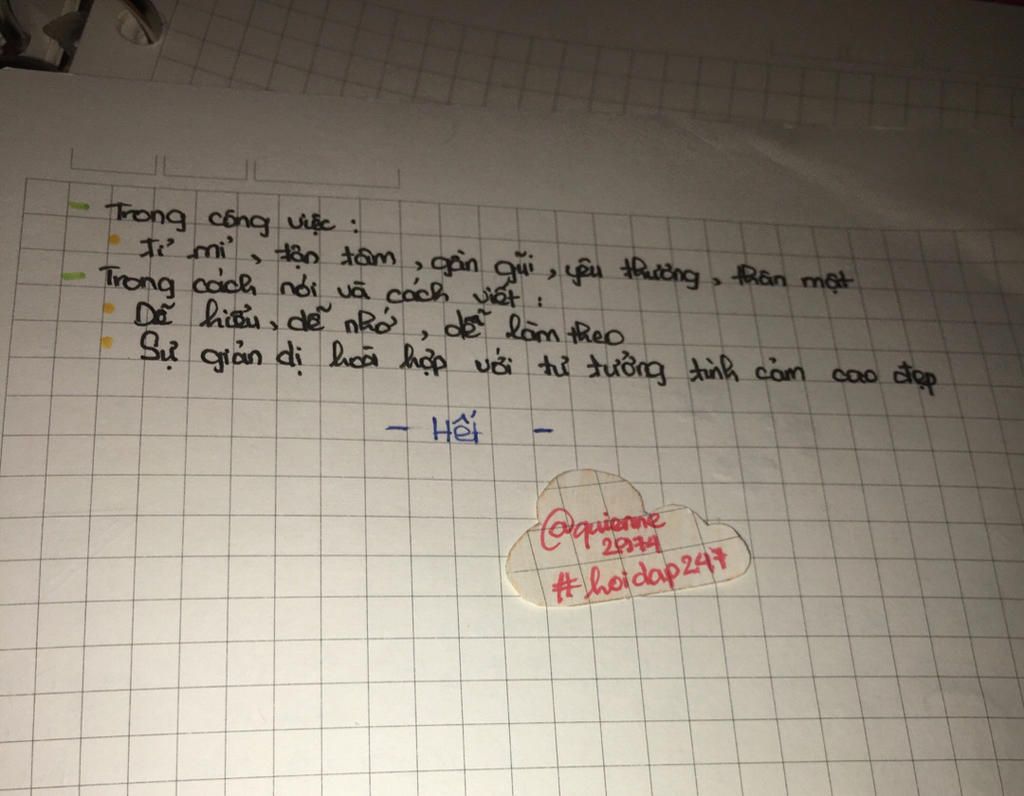 - Trong công việc :
• Tỉ mỉ, tận tâm, gần gũi, yêu thương, thân mật
- Trong cách nói và cách viết :
• Dễ hiểu, dễ nhớ, dễ làm theo
• Sự giản dị hoà hợp với tư tưởng tình cảm cao đẹp
- Hết -
#hoidap247